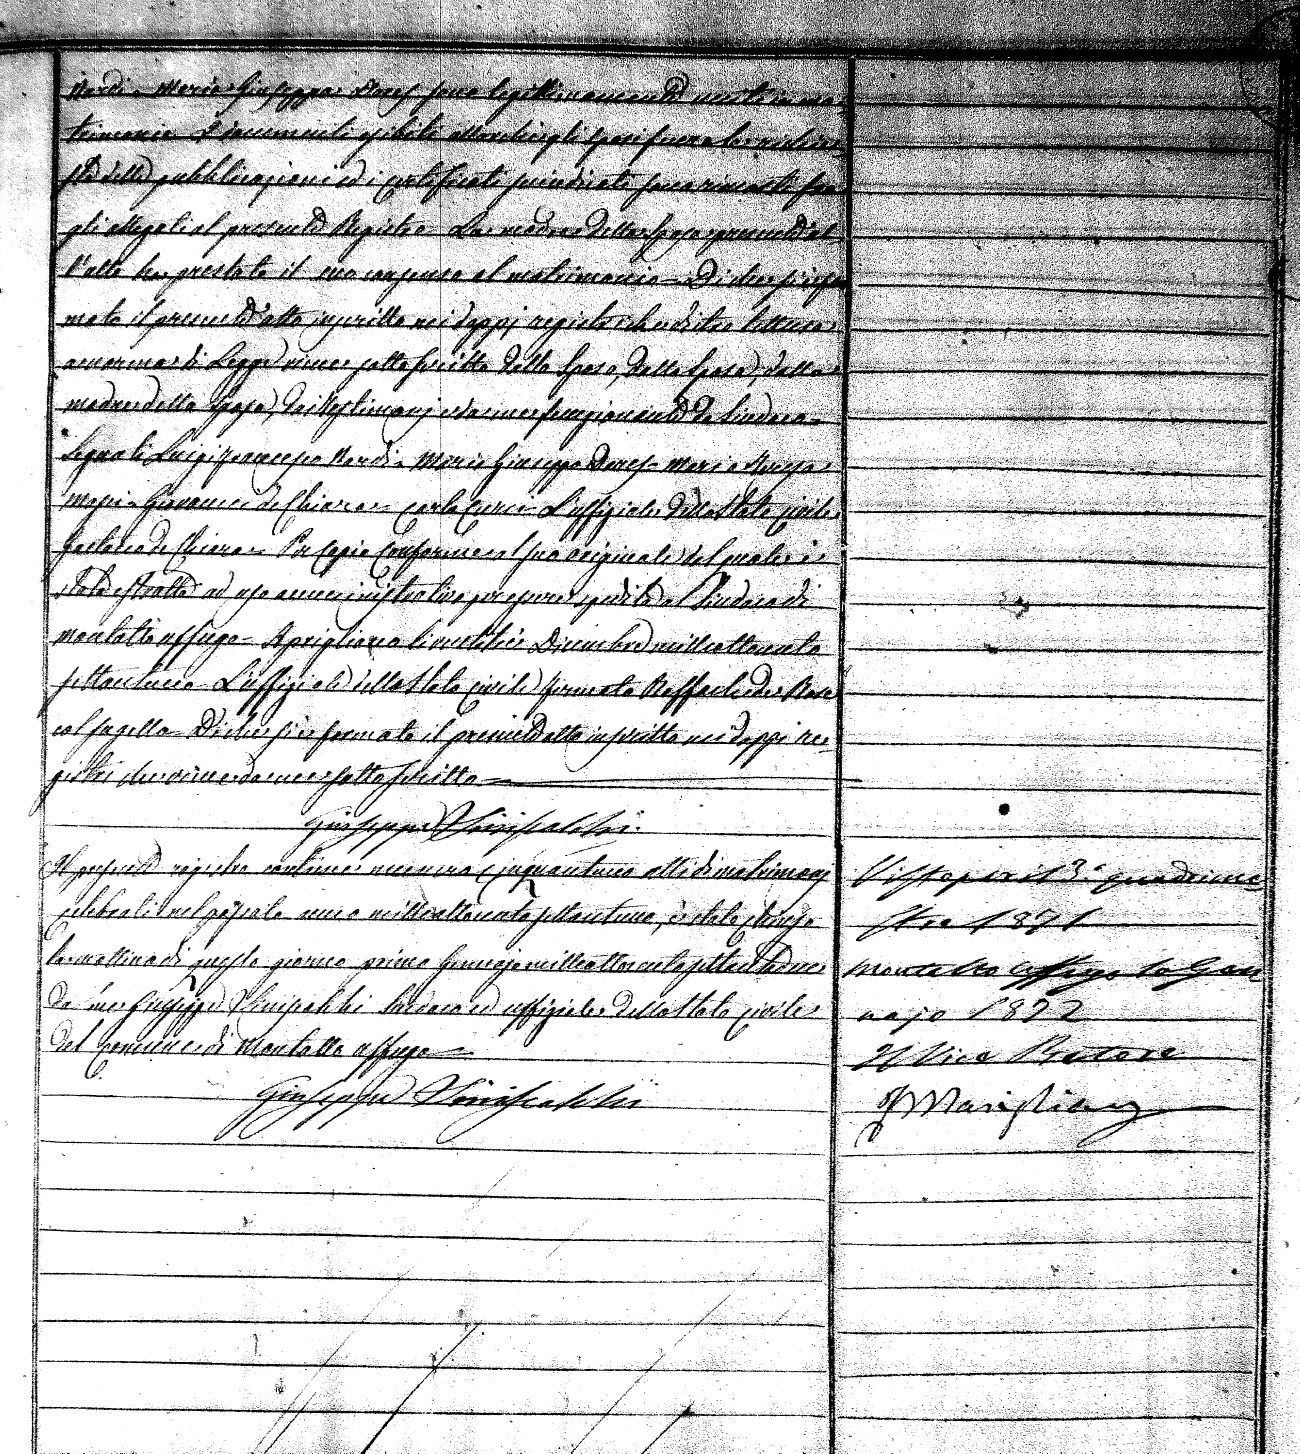 Nardi e Maria Giuseppa sono legittimamente uniti in ma-
trimonio. I documenti esibiti sposi furono le richie-
ste delle pubblicazioni ed i certificati sono rimasti fra
gli allegati al presente Registro - La madre della sposa presente al-
l'atto ha prestato il suo consenso al matrimonio - Di che si è for-
mato il presente atto inscritto nei doppi registri che lettura
a norma di Legge viene sottoscritto dallo Sposo, dalla Sposa, dalla
madre della sposa, dai testimoni e da me funzionante da Sindaco -
Segnati Luigi Francesco Nardi - Maria Giuseppa - Maria Teresa
Giovanni de Chiara - Carlo - L'uffiziale dello stato civile
de Chiara - Per Copia Conforme al suo originale del quale è
stata estratta ad uso amministrativo per essere spedita al Sindaco di
Montalto uffugo - Aprigliano li Dicembre milleottocento
settantuno - L'uffiziale dello stato civile firmato Raffaele de Rose
col suggello - Di che si è formato il presente atto inscritto nei doppi re-
gistri che viene da me sottoscritto
Giuseppe Siniscalchi
Il presente registro contiene numero cinquantuno atti di matrimonj
celebrati nel passato anno milleottocento settantuno, è stato chiuso
la mattina di questo giorno primo Gennajo milleottocento settantadue
da me Giuseppe Siniscalchi Sindaco ed uffiziale dello stato civile
del Comune di Montalto uffugo
Giuseppe Siniscalchi
Visto per il 3° quadrime-
stre 1871
Montalto Uffugo lo Gen-
najo 1872
Il Vice Pretore